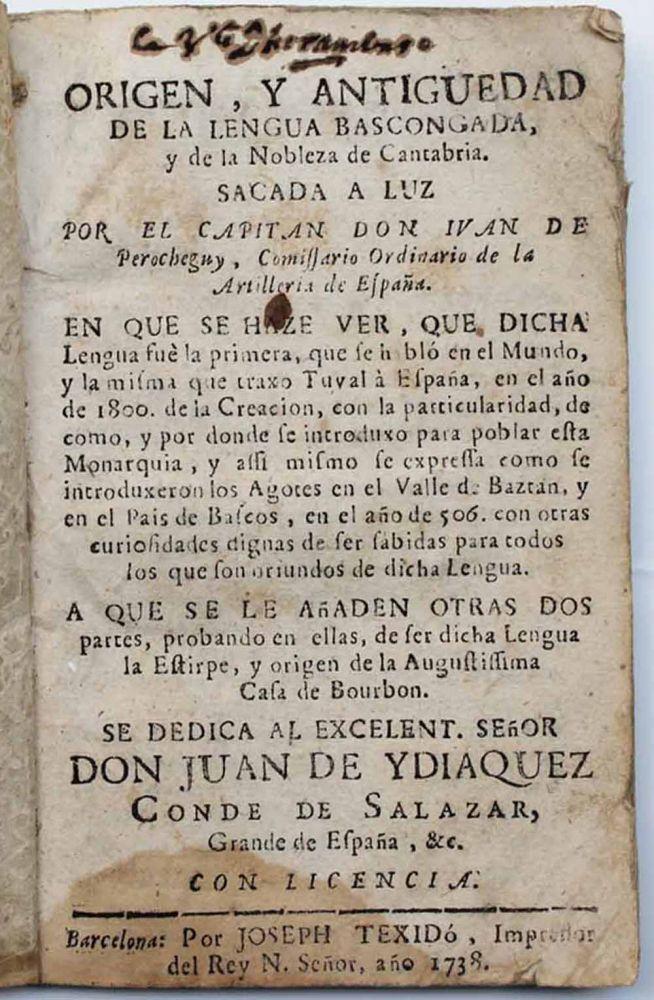 ORIGEN, Y ANTIGUEDAD
DE LA LENGUA BASCONGADA,
y de la Nobleza de Cantabria.
SACADA A LUZ
POR EL CAPITAN DON IVAN DE
Perocheguy, Comiſſario Ordinario de la
Artilleria de Eſpaña.
EN QUE SE HAZE VER, QUE DICHA
Lengua fuè la primera, que ſe habló en el Mundo,
y la miſma que traxo Tuval à Eſpaña, en el año
de 1800. de la Creacion, con la particularidad, de
como, y por donde ſe introduxo para poblar eſta
Monarquia, y aſſi miſmo ſe expreſſa como ſe
introduxeron los Agotes en el Valle de Baztan, y
en el Pais de Baſcos, en el año de 506. con otras
curioſidades dignas de ſer ſabidas para todos
los que ſon oriundos de dicha Lengua.
A QUE SE LE AñADEN OTRAS DOS
partes, probando en ellas, de ſer dicha Lengua
la Eſtirpe, y origen de la Auguſtiſſima
Caſa de Bourbon.
SE DEDICA AL EXCELENT. SEñOR
DON JUAN DE YDIAQUEZ
CONDE DE SALAZAR,
Grande de Eſpaña, &c.
CON LICENCIA.
Barcelona: Por JOSEPH TEXIDó, Impreſſor
del Rey N. Señor, año 1738.